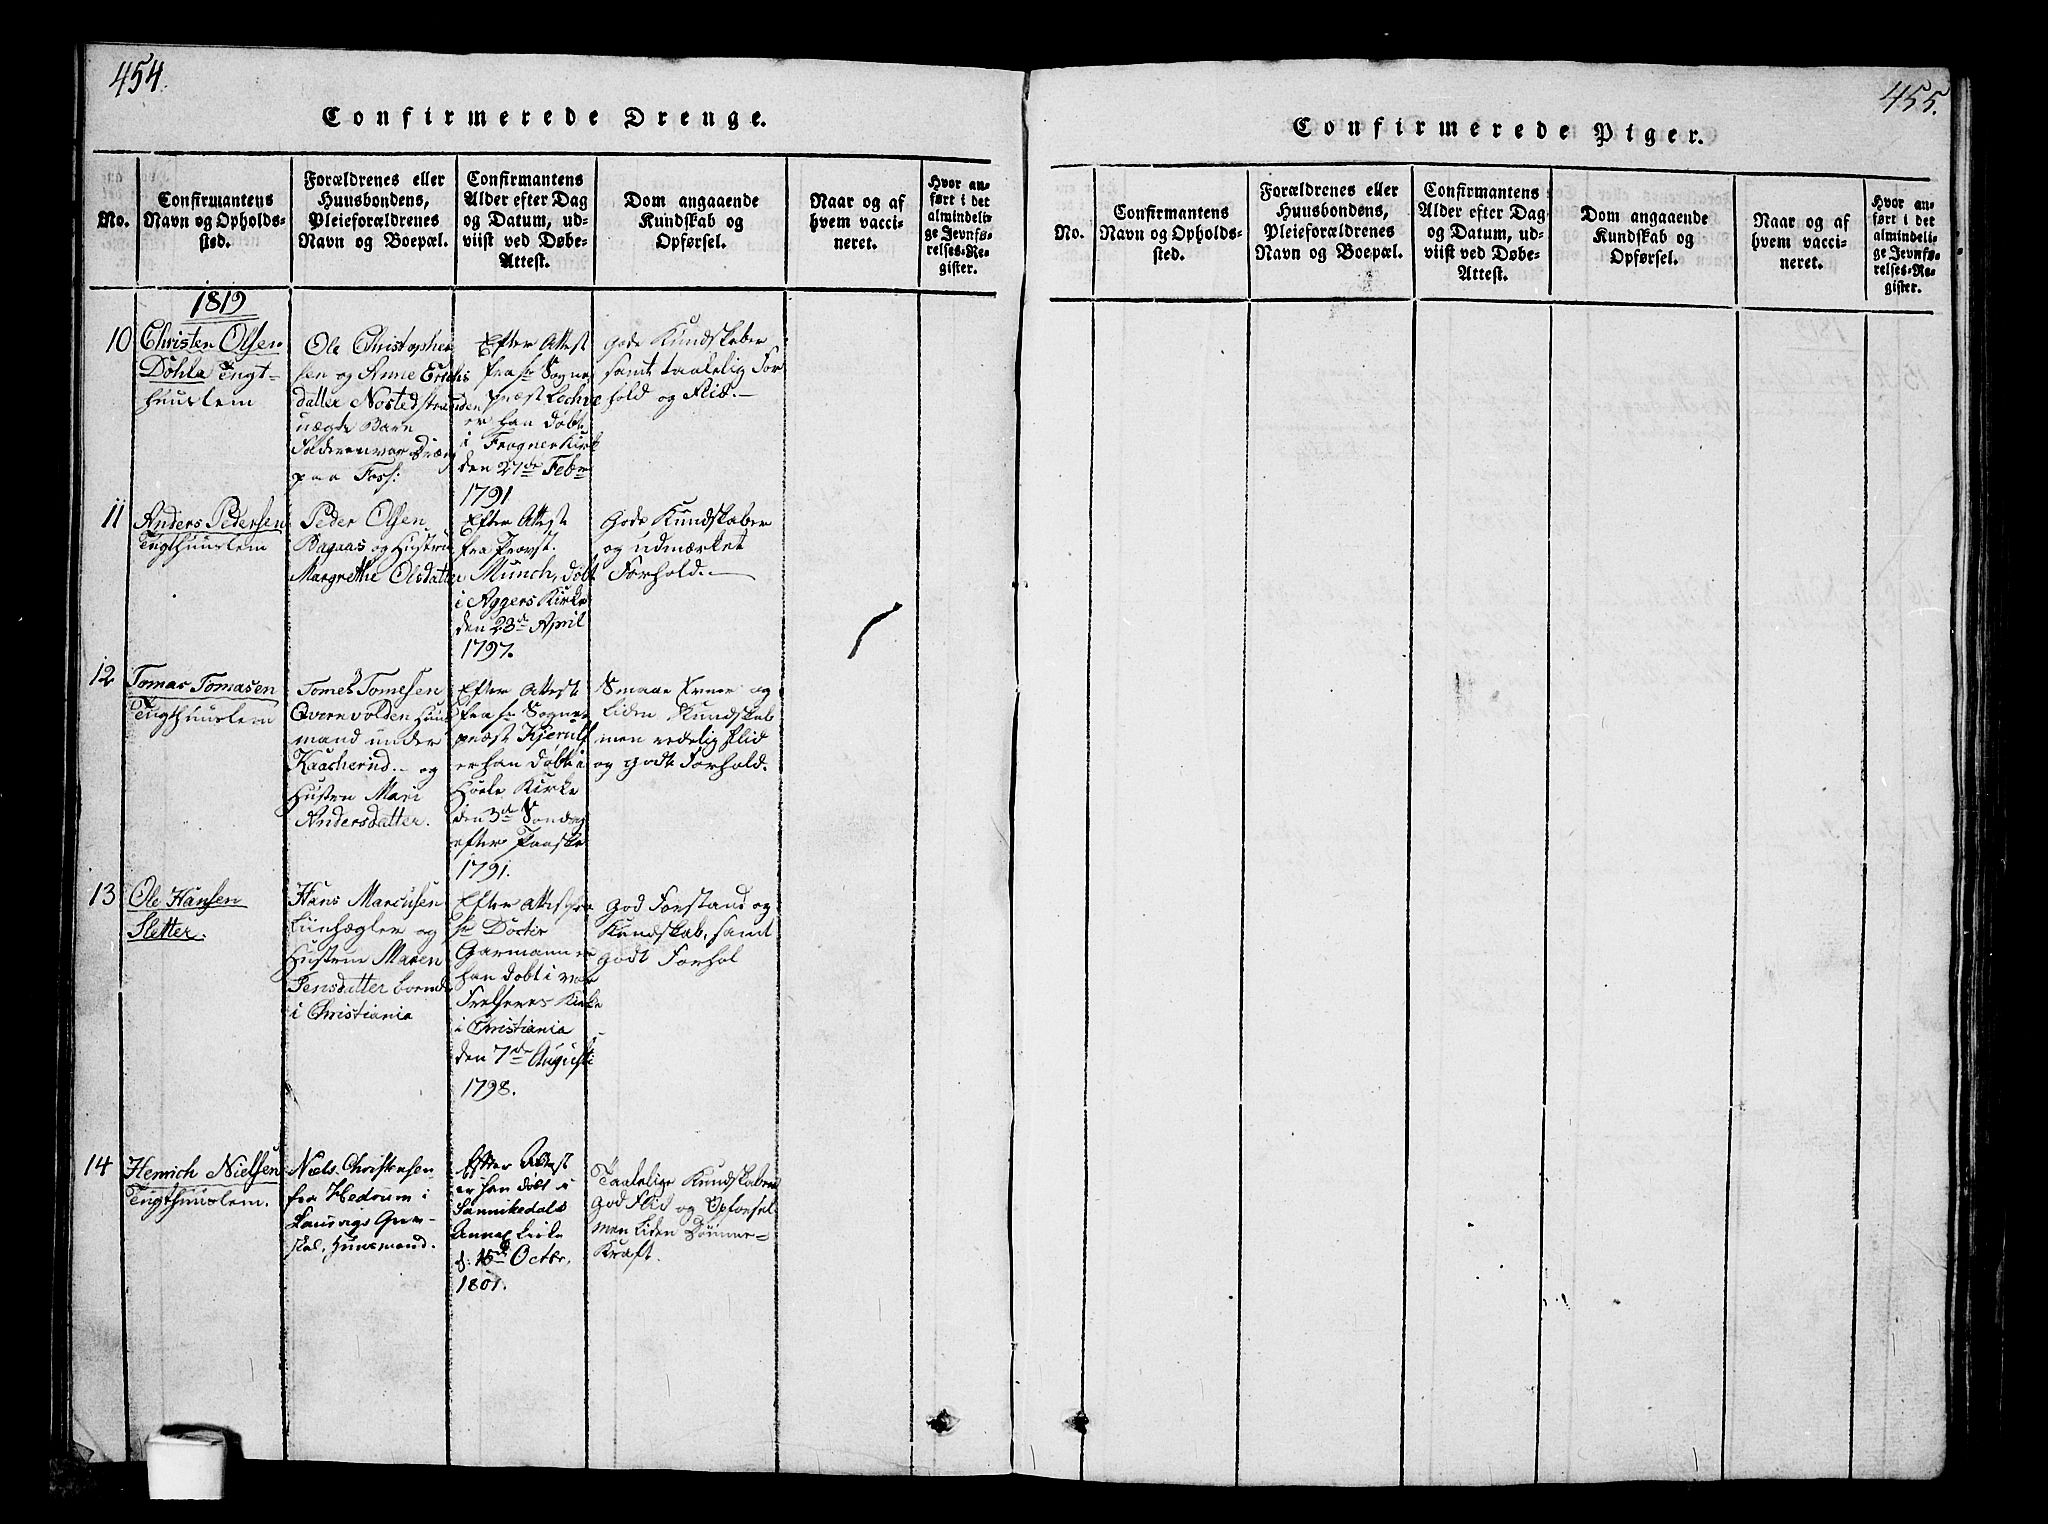 454.
Confirmerede Drenge.
No.
Confirmantens
Navn og Opholds-
sted.
Forældrenes eller
Huusbondens,
Pleieforældrenes
Navn og Boepæl.
Confirmantens
Alder efter Dag
og Datum, ud-
viist ved Døbe-
Attest.
Dom angaaende
Kundskab og
Opførsel.
Naar og af
hvem vacci-
neret.
Hvor an-
ført i det
almindeli-
ge Jevnfø-
relses-Re-
gister.
1819
10
Christen Olsen
Döhla Tugt-
huuslem
Ole Christopher
sen og Anne Erichs
datter Nøsted
uægte Barn
Faderen var
paa Foss:
Efter Attest
fra hr Sogne
præst
er han döbt
i Frogner Kirk
den 27de Febr
1791
Gode Kundskaber
samt taalelig For
hold og Flid.-
11
Anders Pedersen
Tugthuuslem
Peder Olsen
Bagaas og Hustru
Margrethe Olsdatter
Efter Attest
fra Provst.
Munch, döbt
i Aggers Kirke
den 23de April
1797.
Gode Kundskaber
og udmærket
Forhold.-
12
Tomas Tomasen
Tugthuuslem
Tomes Tomesen
Qvernvolden Huus
mand under
og
Hustru Mari
Andersdatter.
Efter Attest
fra hr Sogne
præst Kjerulf
er han döbt i
Kirke
den 3de Söndag
efter Paaske
1791.
Smaae Evner og
Liden Kundskab
men redelig Flid
og godt Forhold.
13
Ole Hansen
Sletter.
Hans Marcusen
og
Hustru Maren
Jensdatter boende
i Christiania
Efter Attest fra
hr Doctor
Garmann er
han döbt i vor
Frelsers Kirke
i Christiania
den 7de Augusti
1798.
God Forstand og
Kundskab, samt
godt Forhol
14
Henrich Nielsen
Tugthuuslem.
Niels Christensen
fra Hedrum i
Laurvigs Grev-
skab, Huusmand.
Efter Attest
er han döbt i
Sannikedals
Annex Kirke
d: 18de Octbr.
1801.
Taalelige Kundskaber
god Flid og Opførsel
men liden Dømme-
Kraft.
455.
Confirmerede Piger.
No.
Confirmantens
Navn og Opholds-
sted.
Forældrenes eller
Huusbondens,
Pleieforældrenes
Navn og Boepæl.
Confirmantens
Alder efter Dag
og Datum, ud-
viist ved Døbe-
Attest.
Dom angaaende
Kundskab og
Opførsel.
Naar og af
hvem vacci-
neret.
Hvor an-
ført i det
almindeli-
ge Jevnfø-
relses-Re-
gister.